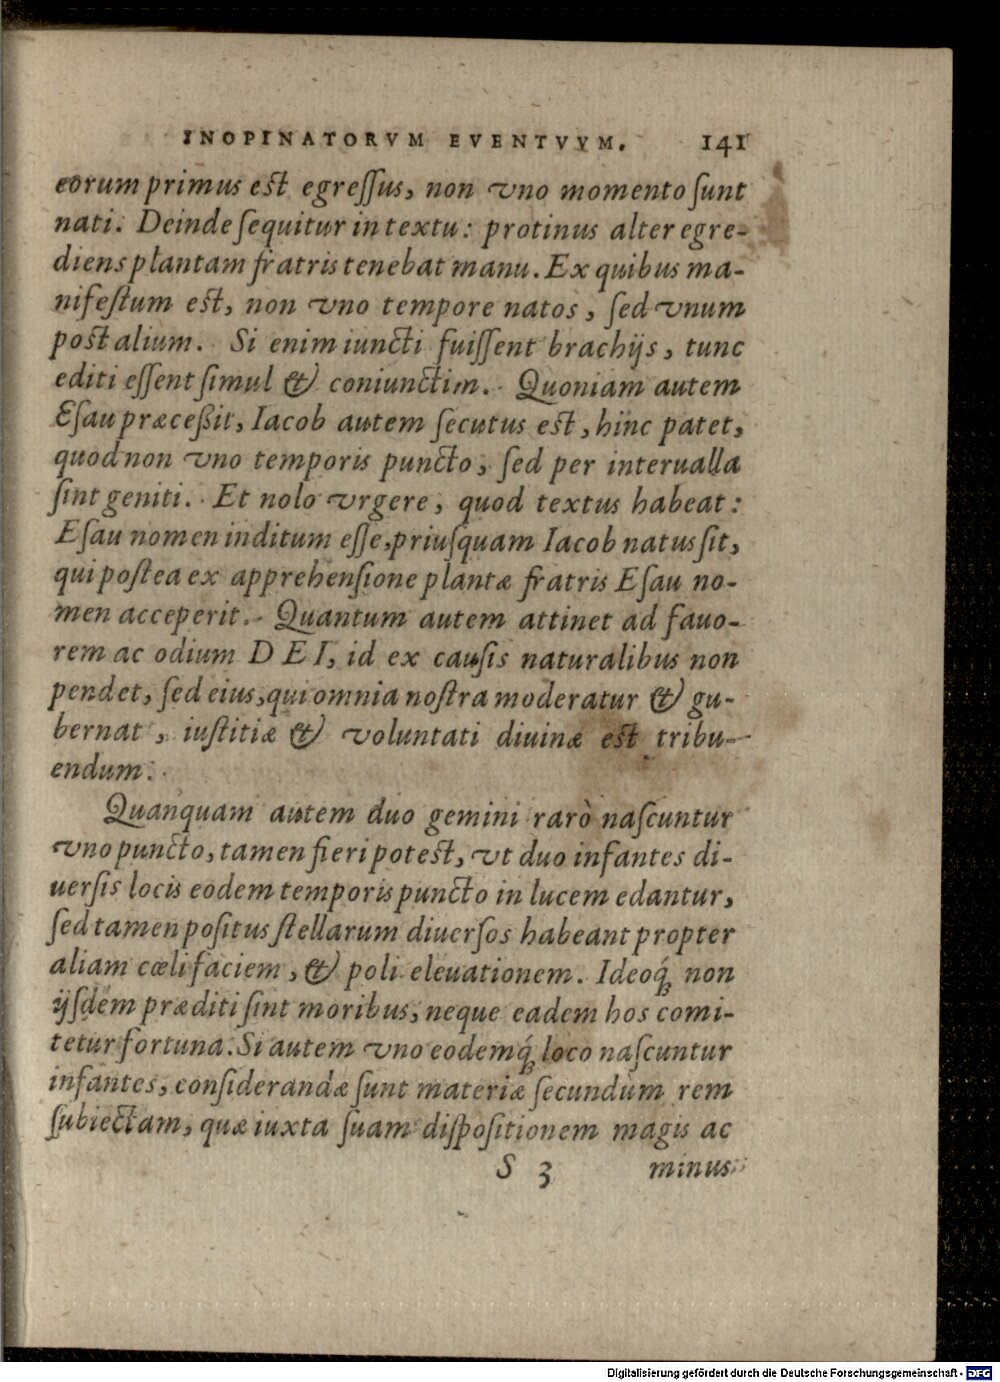 INOPINATORVM EVENTVVM. 141
eorum primus est egreſſus, non vno momento ſunt
nati. Deinde ſequitur in textu: protinus alter egre-
diens plantam fratris tenebat manu. Ex quibus ma-
nifeſtum est, non vno tempore natos, ſed vnum
post alium. Si enim iuncti fuiſſent brachijs, tunc
editi eſſent ſimul & coniunctim. Quoniam autem
Eſau præceßit, Iacob autem ſecutus est, hinc patet,
quod non vno temporis puncto, ſed per interualla
ſint geniti. Et nolo vrgere, quod textus habeat:
Eſau nomen inditum eſſe, priuſquam Iacob natus ſit,
qui poſtea ex apprehenſione plantæ fratris Eſau no-
men acceperit. Quantum autem attinet ad fauo-
rem ac odium DEI, id ex cauſis naturalibus non
pendet, ſed eius, qui omnia noſtra moderatur & gu-
bernat, iuſtitiæ & voluntati diuinæ est tribu-
endum.
Quanquam autem duo gemini rarò naſcuntur
vno puncto, tamen fieri potest, vt duo infantes di-
uerſis locis eodem temporis puncto in lucem edantur,
ſed tamen poſitus ſtellarum diuerſos habeant propter
aliam cœli faciem, & poli eleuationem. Ideoq́; non
ijſdem præditi ſint moribus, neque eadem hos comi-
tetur fortuna. Si autem vno eodemq́; loco naſcuntur
infantes, conſiderandæ ſunt materiæ ſecundùm rem
ſubiectam, quæ iuxta ſuam diſpoſitionem magis ac
S 3 minus
Digitalisierung gefördert durch die Deutsche Forschungsgemeinschaft - DFG